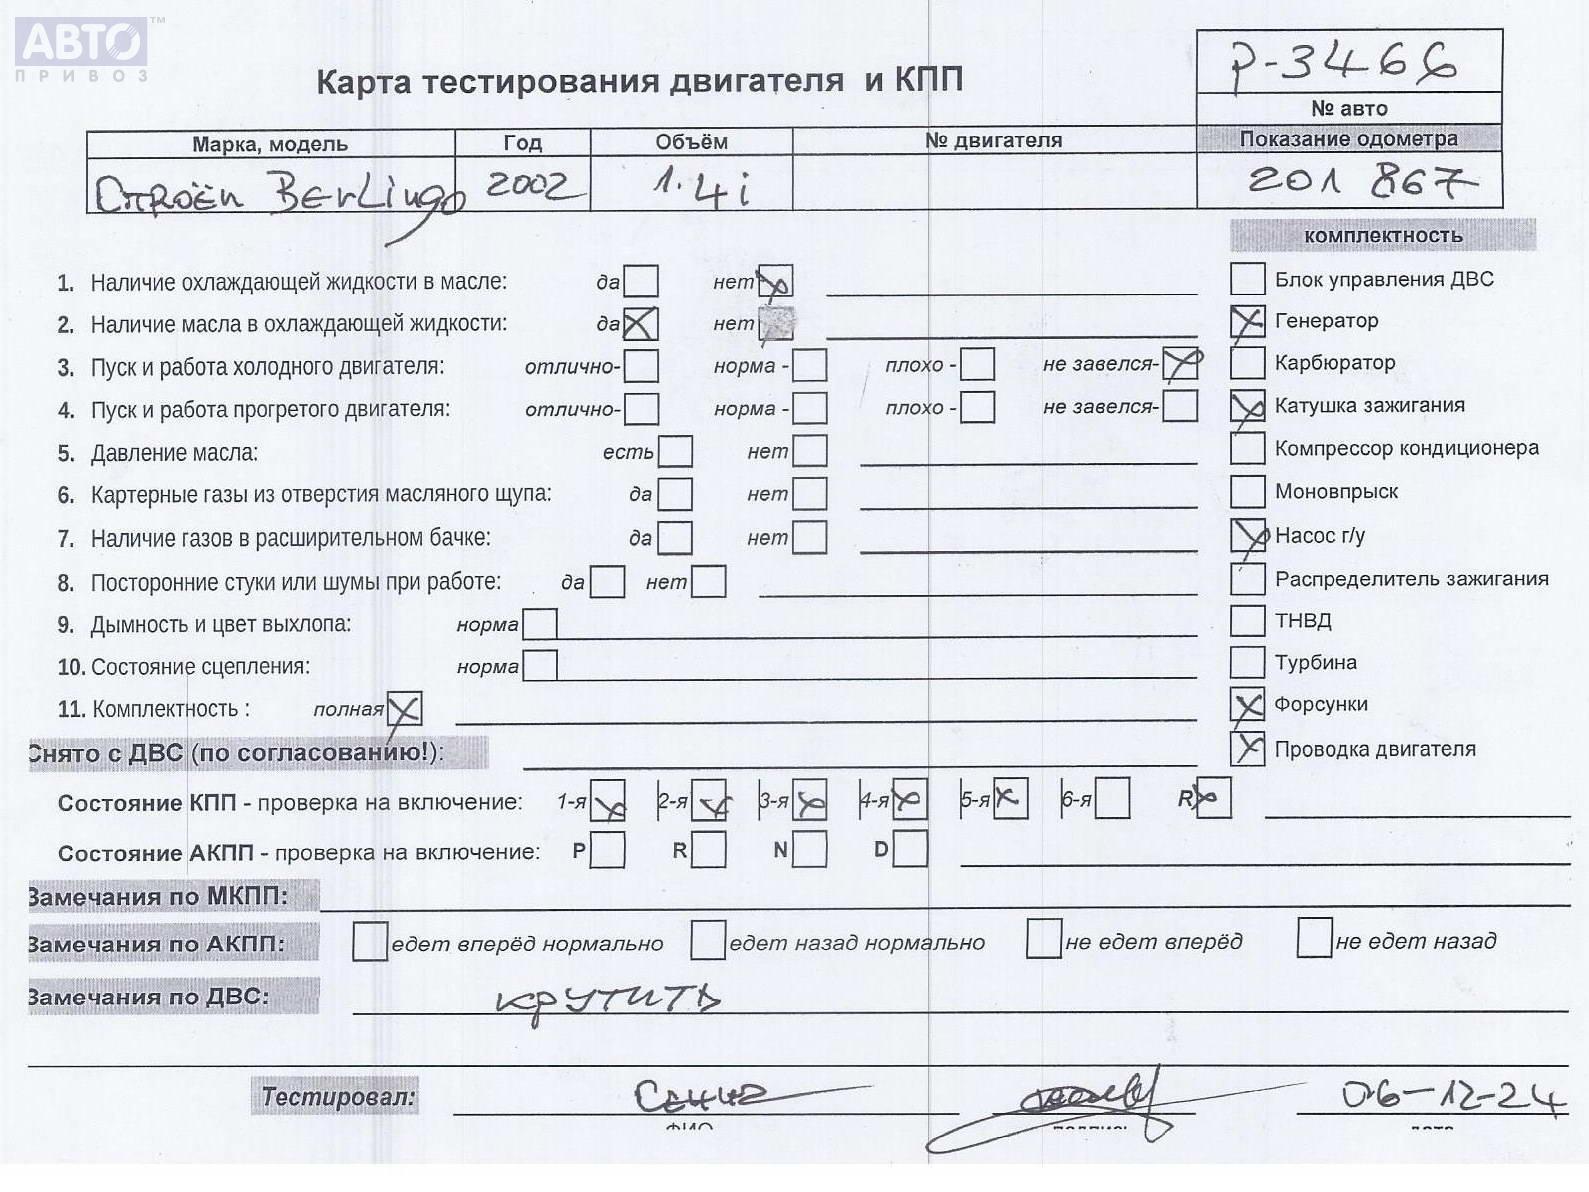 АВТО™
ПРИВОЗ
Карта тестирования двигателя и КПП
Р-3466
№ авто
Марка, модель Год Объём № двигателя Показание одометра
Citroën Berlingo 2002 1.4i 201 867
комплектность
1. Наличие охлаждающей жидкости в масле: да нет
Блок управления ДВС
2. Наличие масла в охлаждающей жидкости: да нет
Генератор
3. Пуск и работа холодного двигателя: отлично- норма - плохо - не завелся-
Карбюратор
4. Пуск и работа прогретого двигателя: отлично- норма - плохо - не завелся-
Катушка зажигания
5. Давление масла: есть нет
Компрессор кондиционера
6. Картерные газы из отверстия масляного щупа: да нет
Моновпрыск
7. Наличие газов в расширительном бачке: да нет
Насос г/у
8. Посторонние стуки или шумы при работе: да нет
Распределитель зажигания
9. Дымность и цвет выхлопа: норма
ТНВД
10. Состояние сцепления: норма
Турбина
11. Комплектность : полная
Форсунки
Снято с ДВС (по согласованию!):
Проводка двигателя
Состояние КПП - проверка на включение: 1-я 2-я 3-я 4-я 5-я 6-я R
Состояние АКПП - проверка на включение: P R N D
Замечания по МКПП:
Замечания по АКПП: едет вперёд нормально едет назад нормально не едет вперёд не едет назад
Замечания по ДВС: крутить
Тестировал: 06-12-24
ФИО подпись дата